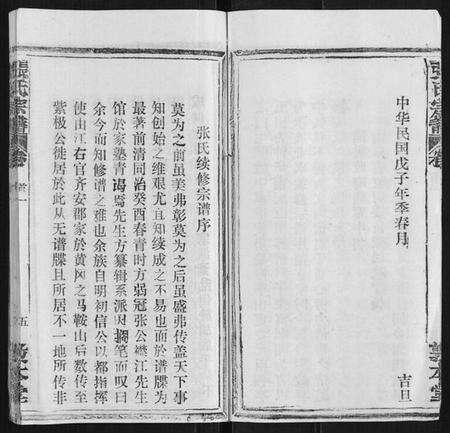 中华民国戊子年季春月
吉旦
张氏续修宗谱序
莫为之前虽美弗彰莫为之后虽盛弗传盖天下事
知创始之维艰尤宜知续成之不易也而於谱牒为
最著前清同治癸酉春青时方弱冠张公襟江先生
馆於家塾青谒焉先生方纂辑系派因搁笔而叹曰
余今而知修谱之难也余族自明初信公以都指挥
使由江右官齐安郡家於黄冈之马鞍山后数传至
紫极公徙居於此从无谱牒且所居不一地所传非
張氏宗谱
卷
五